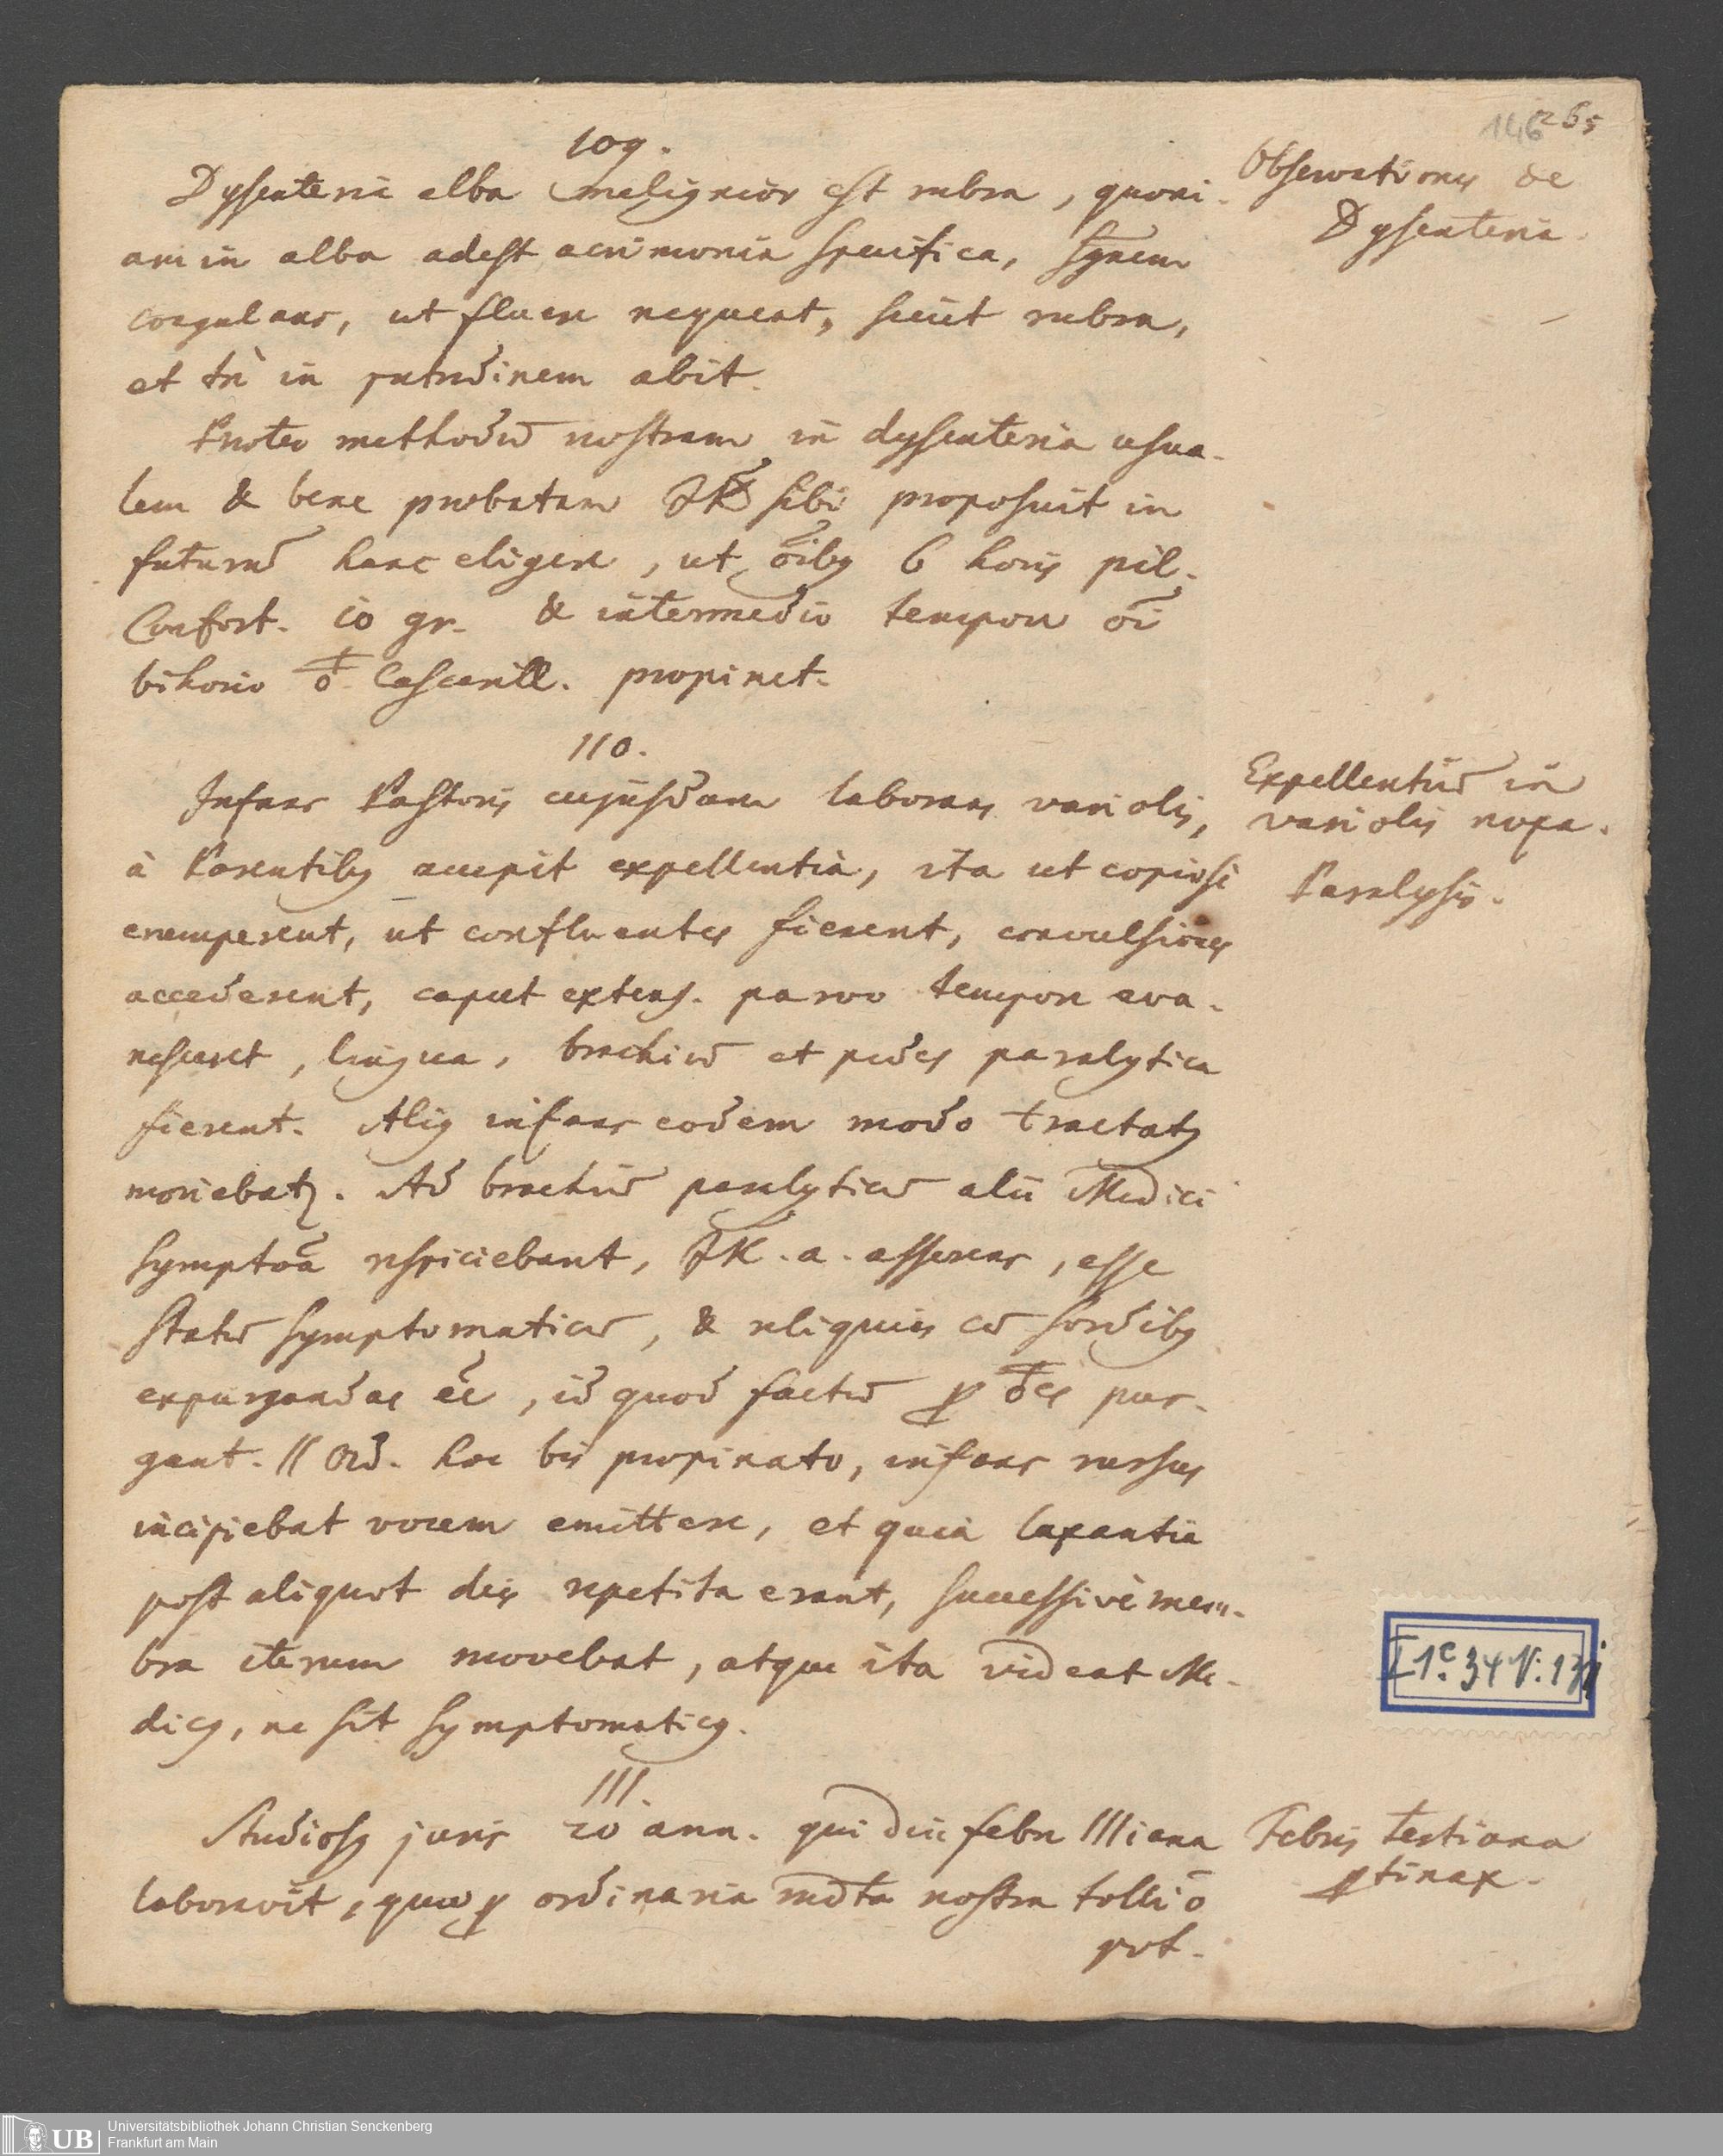 146 265
109.
Observationes de
Dysenteria.
Dysenteria alba malignior est rubra, quoni-
am in alba adest acrimonia specifica, sgnem
coagulans, ut fluere nequeat, sicut rubra,
et tn in putredinem abit.
Praeter methodū nostram in dysenteria usua-
lem & bene probatam sibi proposuit in
futurū hanc eligere, ut oībq 6 horis pil.
Confort. 10 gr. & intermedio tempore oī
bihorio Cascarill. propinet.
110.
Expellentiū in
variolis noxa.
Paralysis.
Infans Pastoris cujusdam laborans variolis,
à Parentibq accepit expellentia, ita ut copiosè
erumperent, ut confluentes fierent, convulsiones
accederent, caput extens. parvo tempore eva-
nesceret, lingua, brachiū et pedes paralytica
fierent. Aliq infans eodem modo tractatq
moriebatr. Ad brachiū paralyticū alii Medici
symptōa respiciebant, . a. asserens, esse
statū symptomaticū, & reliquias cū sordibq
expurgandas eē, id quod factū p des pur-
gant. II ord. hoc bis propinato, infans rursus
incipiebat vocem emittere, et quia laxantia
post aliquot dies repetita erant, successivè mem-
bra iterum movebat, atque ita videat Me-
dicq, ne sit symptomaticq.
I 1c. 34 V: 131
111.
Febris tertiana
ptinax.
Studiosq juris 20 ann. qui diu febre IIIiana
laboravit, quae p ordinaria mdta nostra tolli ō
pot.
Universitätsbibliothek Johann Christian Senckenberg
Frankfurt am Main
UB